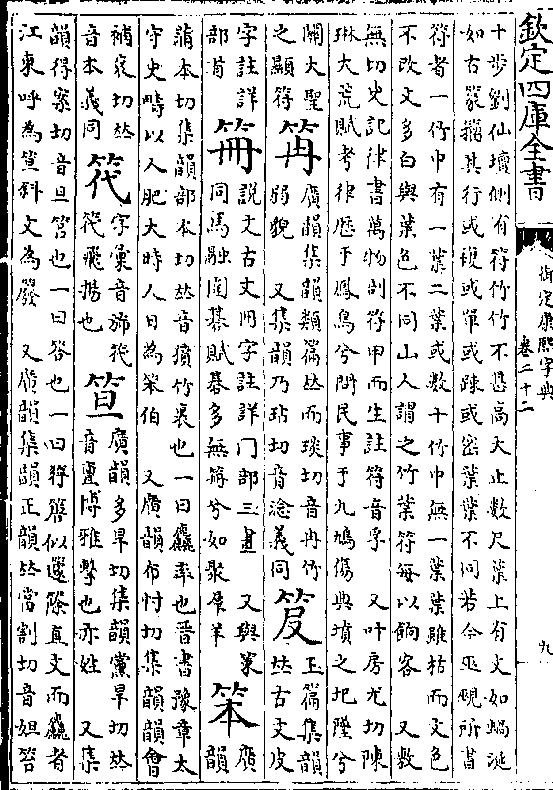 欽定四庫全書
御定康熙字典
卷二十二
九
十步劉仙壇側有符竹竹不甚高大止數尺葉上有文如蝸涎
如古篆籀其行或複或單或疎或宻葉葉不同若今巫覡所書
符者一竹中有一葉二葉或數十竹中無一葉葉雖枯而文色
不改文多白與葉色不同山人謂之竹葉符每以餉客 又數
無切史記律書萬物剖符甲而生註符音孚 又叶房尤切陳
琳大荒賦考律歴于鳳鳥兮問民事于九鳩傷典墳之圯墜兮
闡大聖
之顯符
䇋
廣韻集韻類篇𠀤而琰切音冉竹
弱貌 又集韻乃玷切音淰義同
玉篇集韻
𠀤古文皮
字註詳
部首
笧
說文古文冊字註詳冂部三畫 又與策
同馬融圍棊賦碁多無笧兮如聚羣羊
笨
廣
韻
蒲本切集韻部本切𠀤音獖竹裏也一曰麤率也晉書豫章太
守史疇以人肥大時人目為笨伯 又廣韻布忖切集韻韻會
補衮切𠀤
音本義同
笩
字彙音斾筏
筏飛揚也
笪
廣韻多旱切集韻黨旱切𠀤
音亶博雅擊也亦姓 又集
韻得案切音旦筥也一曰笞也一曰符簷似籧篨直文而麤者
江東呼為笪斜文為發 又廣韻集韻正韻𠀤當割切音妲笞